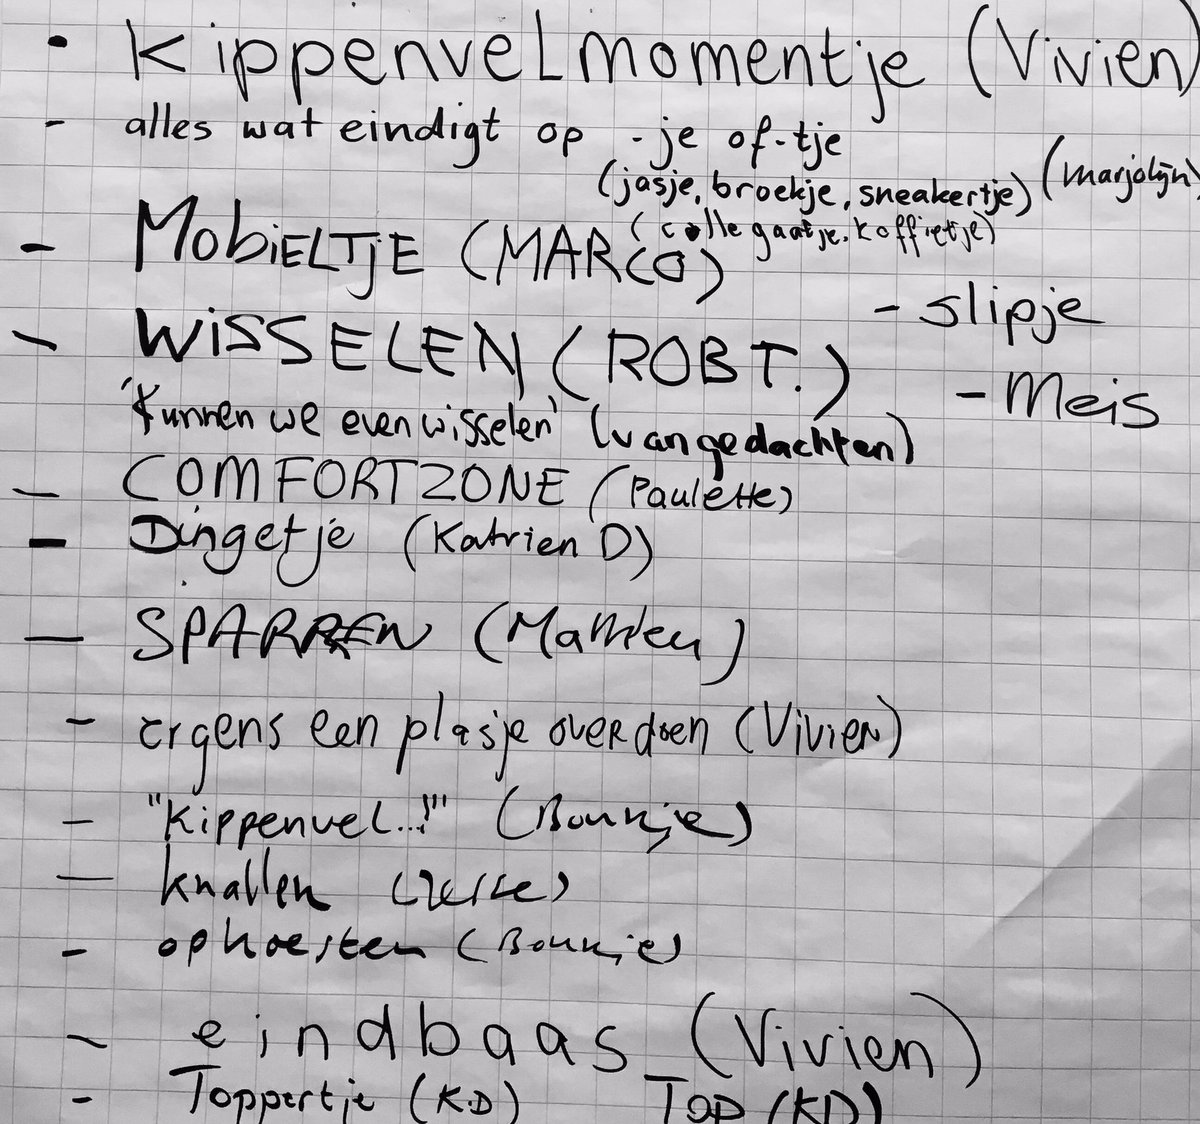 • Kippenvelmomentje (Vivien)
- alles wat eindigt op -je of -tje
(jasje, broekje, sneakertje) (Marjolijn)
(collegaatje, koffietje)
- MobiELTjE (MARCO)
- slipje
- WiSSELEN (ROBT.)
- Meis
'Kunnen we even wisselen' (van gedachten)
- COMFORTZONE (Paulette)
- Dingetje (Katrien D)
- SPARREN (Matthieu)
- ergens een plasje overdoen (Vivien)
- "Kippenvel..!" (Boukje)
- knallen (Jelle)
- ophoesten (Boukje)
- eindbaas (Vivien)
- Toppertje (K.D) TOP (KD)